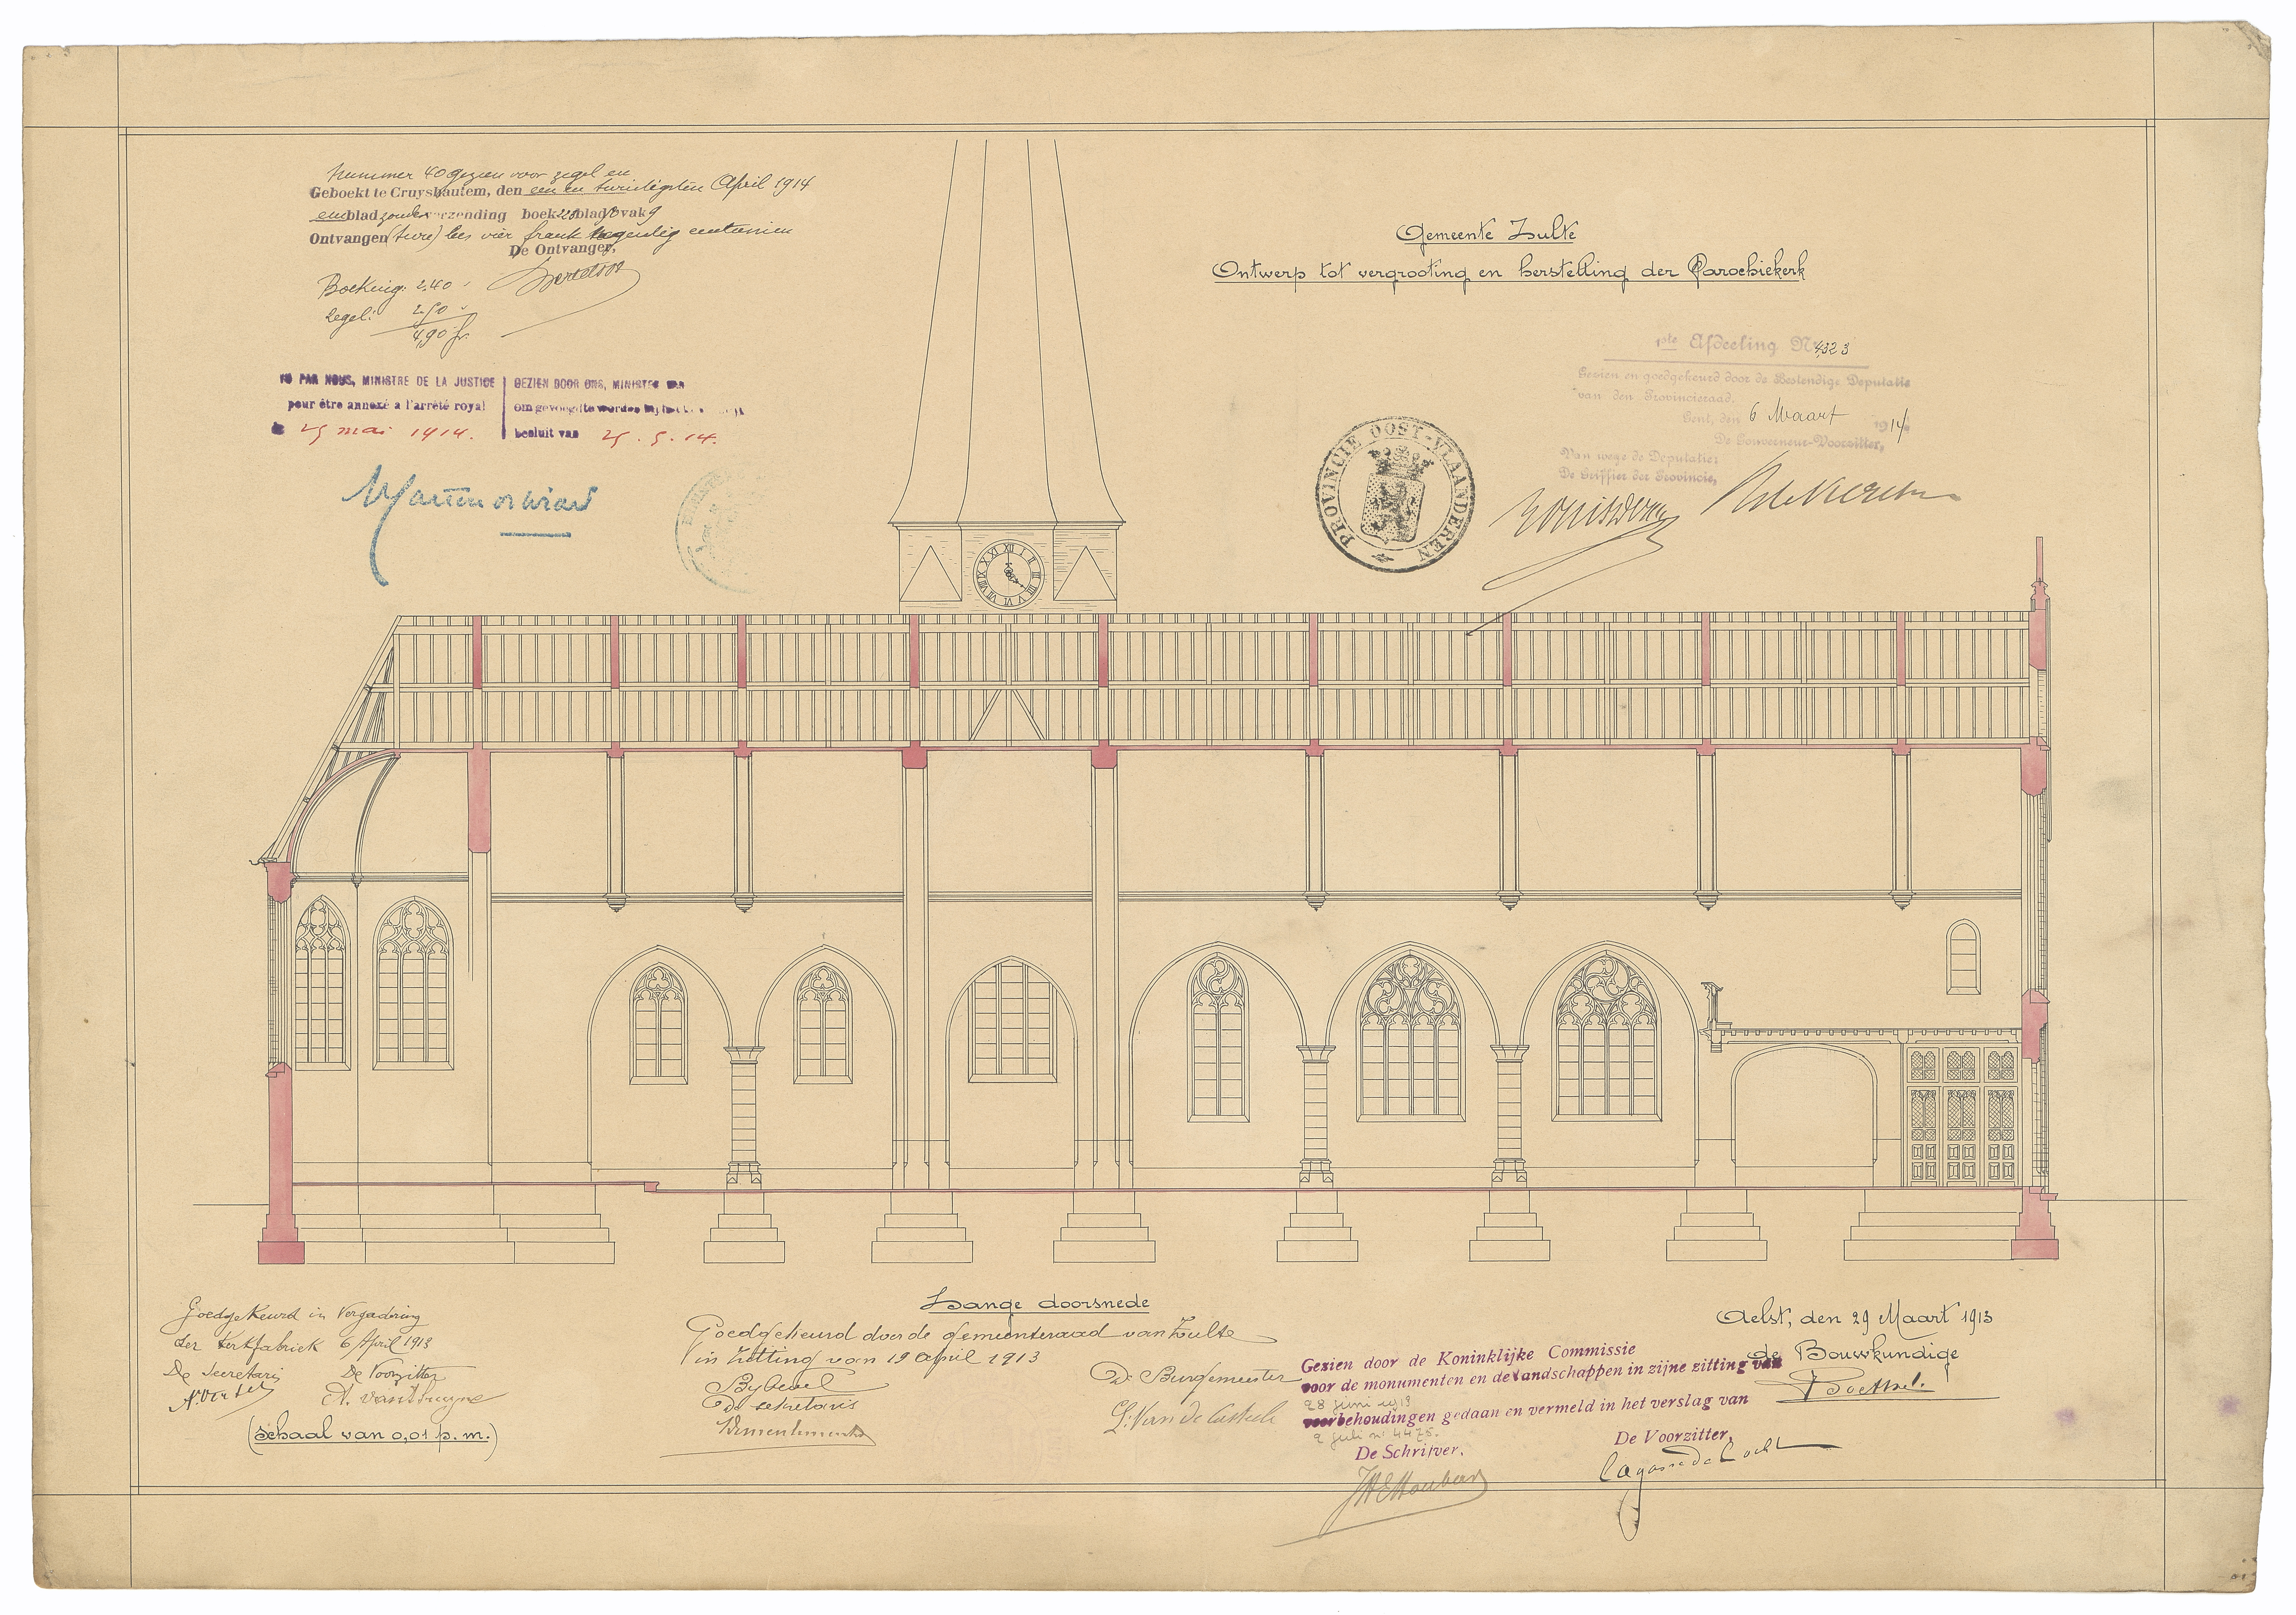 nummer 40 gezien voor zegel en
Geboekt te Cruyshautem, den een en twintigsten April 1914
een blad zonder verzending boek blad vak 9
Ontvangen (twee) lees vier frank negentig centiemen
De Ontvanger,
Boeking: 2,40
Zegel: 2,50
4,90 fr.
VU PAR NOUS, MINISTRE DE LA JUSTICE
pour être annexé a l'arrêté royal
25 mai 1914.
GEZIEN DOOR ONS, MINISTER VAN
om gevoegd te worden bij
besluit van 25.5.14.
Gemeente Zulte
Ontwerp tot vergrooting en herstelling der Parochiekerk
1ste Afdeeling No 4323
Gezien en goedgekeurd door de Bestendige Deputatie
van den Provincieraad.
Gent, den 6 Maart 1914
De Gouverneur-Voorzitter,
Van wege de Deputatie:
De Griffier der Provincie,
PROVINCIE OOST-VLAANDEREN
XII I II III IIII V VI VII VIII IX X XI
Lange doorsnede
Goedgekeurd in Vergadering
der Kerkfabriek 6 April 1913
De Secretaris De Voorzitter
(Schaal van 0,01 p. m.)
Goedgekeurd door de gemeenteraad van Zulte
in zitting van 19 april 1913
De sekretaris
De Burgemeester
Gezien door de Koninklijke Commissie
voor de monumenten en de landschappen in zijne zitting van
28 juni 1913
voorbehoudingen gedaan en vermeld in het verslag van
2 juli n° 4475.
De Schrijver,
De Voorzitter,
Aelst, den 29 Maart 1913
de Bouwkundige